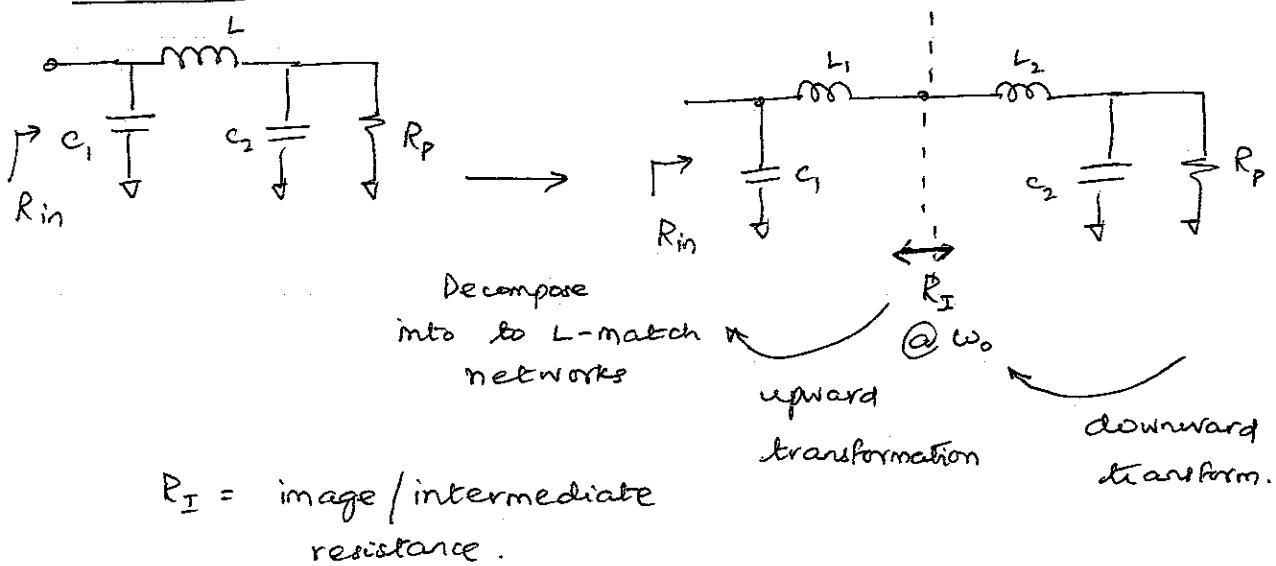 L
C₁
C₂
R_p
R_in
L₁
L₂
C₁
C₂
R_p
R_in
R_I
@ ω₀
Decompose
into to L-match
networks
upward
transformation
downward
transform.
R_I = image/intermediate
resistance.